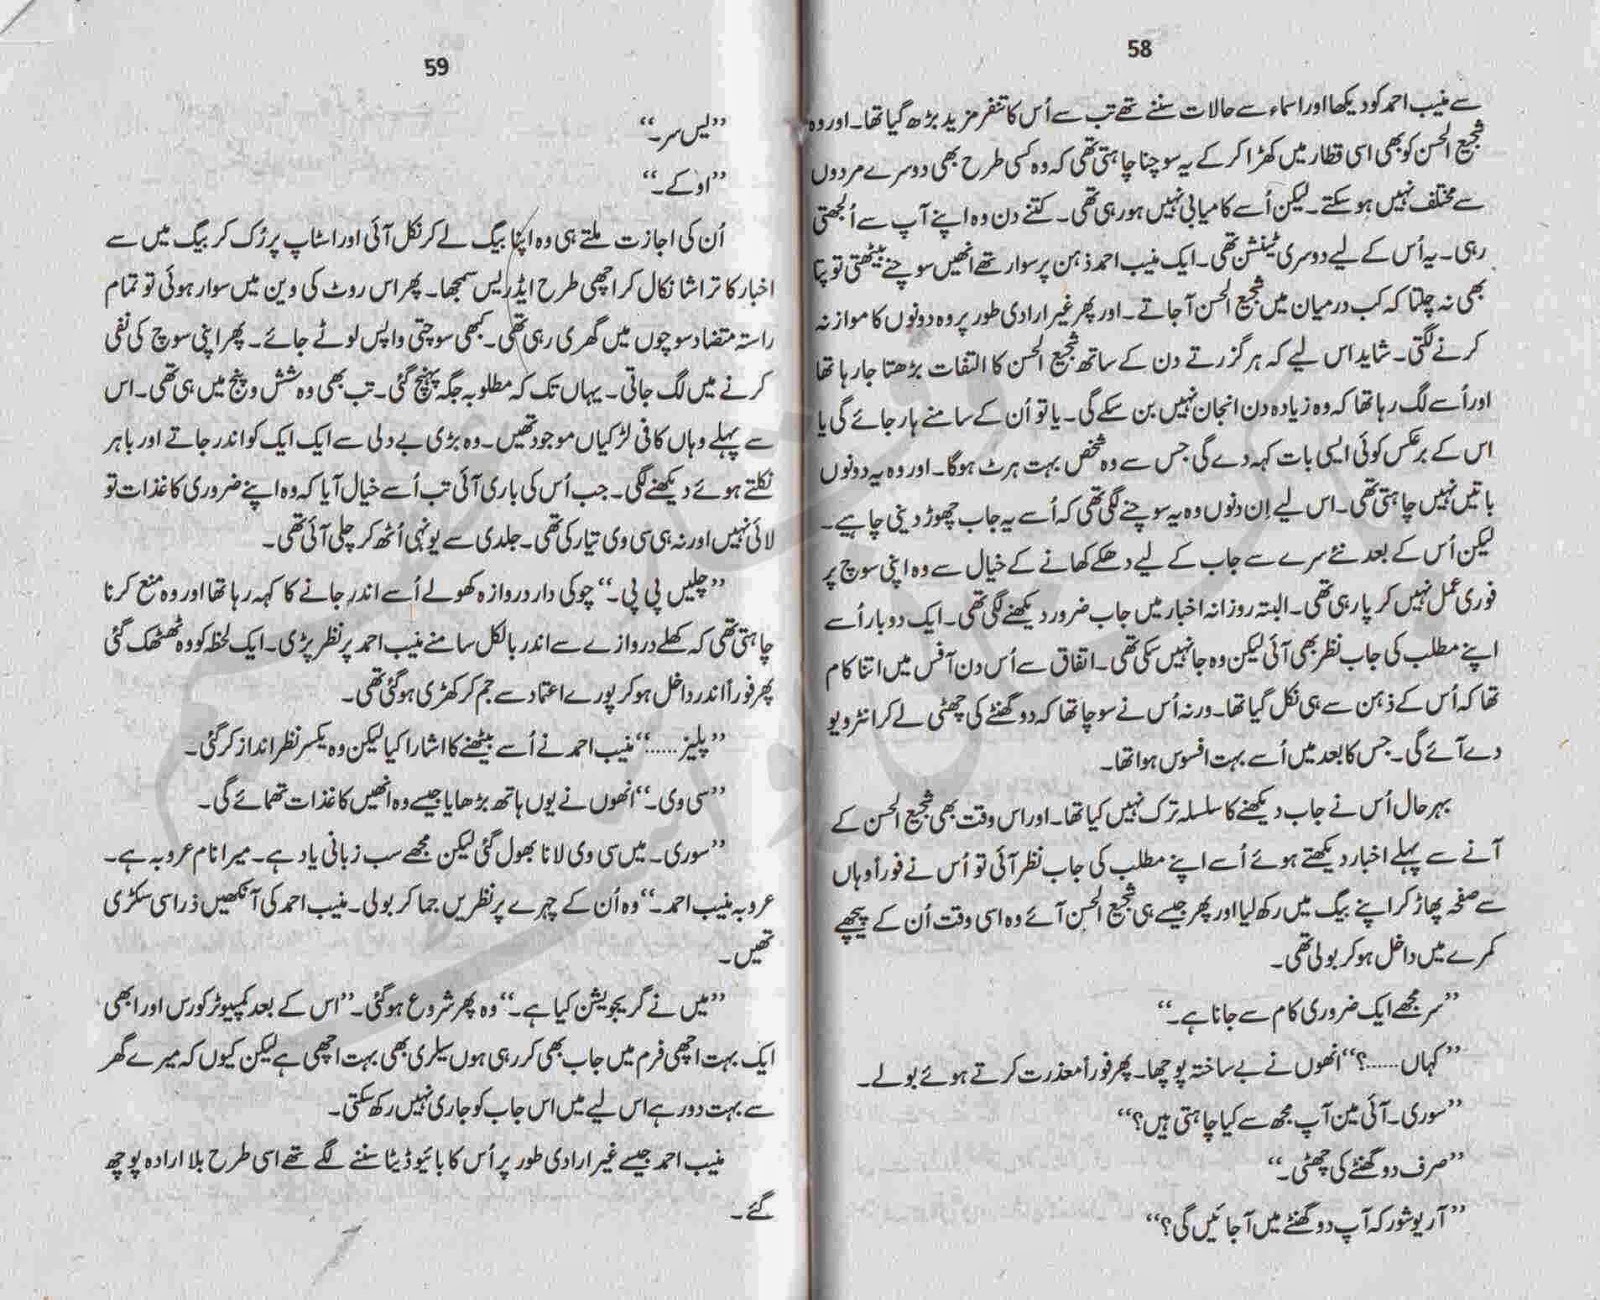 58
سے منیب احمد کو دیکھا اور اسماء سے حالات سننے تھے تب سے اُس کا تنفر مزید بڑھ گیا تھا۔ اور وہ
شجیع الحسن کو بھی اسی قطار میں کھڑا کر کے یہ سوچنا چاہتی تھی کہ وہ کسی طرح بھی دوسرے مردوں
سے مختلف نہیں ہو سکتے۔ لیکن اُسے کامیابی نہیں ہو رہی تھی۔ کتنے دن وہ اپنے آپ سے اُلجھتی
رہی۔ یہ اُس کے لیے دوسری ٹینشن تھی۔ ایک منیب احمد ذہن پر سوار تھے انھیں سوچنے بیٹھتی تو پتا
بھی نہ چلتا کہ کب درمیان میں شجیع الحسن آ جاتے۔ اور پھر غیر ارادی طور پر وہ دونوں کا موازنہ
کرنے لگتی۔ شاید اس لیے کہ ہر گزرتے دن کے ساتھ شجیع الحسن کا التفات بڑھتا جا رہا تھا
اور اُسے لگ رہا تھا کہ وہ زیادہ دن انجان نہیں بن سکے گی۔ یا تو اُن کے سامنے ہار جائے گی یا
اس کے برعکس کوئی ایسی بات کہہ دے گی جس سے وہ شخص بہت ہرٹ ہوگا۔ اور وہ یہ دونوں
باتیں نہیں چاہتی تھی۔ اس لیے اِن دنوں وہ یہ سوچنے لگی تھی کہ اُسے یہ جاب چھوڑ دینی چاہیے۔
لیکن اُس کے بعد نئے سرے سے جاب کے لیے دھکے کھانے کے خیال سے وہ اپنی سوچ پر
فوری عمل نہیں کر پا رہی تھی۔ البتہ روزانہ اخبار میں جاب ضرور دیکھنے لگی تھی۔ ایک دو بار اُسے
اپنے مطلب کی جاب نظر بھی آئی لیکن وہ جا نہیں سکی تھی۔ اتفاق سے اُس دن آفس میں اتنا کام
تھا کہ اُس کے ذہن سے ہی نکل گیا تھا۔ ورنہ اُس نے سوچا تھا کہ دو گھنٹے کی چھٹی لے کر انٹرویو
دے آئے گی۔ جس کا بعد میں اُسے بہت افسوس ہوا تھا۔
بہر حال اُس نے جاب دیکھنے کا سلسلہ ترک نہیں کیا تھا۔ اور اس وقت بھی شجیع الحسن کے
آنے سے پہلے اخبار دیکھتے ہوئے اُسے اپنے مطلب کی جاب نظر آئی تو اُس نے فوراً وہاں
سے صفحہ پھاڑ کر اپنے بیگ میں رکھ لیا اور پھر جیسے ہی شجیع الحسن آئے وہ اسی وقت اُن کے پیچھے
کمرے میں داخل ہو کر بولی تھی۔
”سر مجھے ایک ضروری کام سے جانا ہے۔“
”کہاں......؟“ انھوں نے بے ساختہ پوچھا۔ پھر فوراً معذرت کرتے ہوئے بولے۔
”سوری۔ آئی مین آپ مجھ سے کیا چاہتی ہیں؟“
”صرف دو گھنٹے کی چھٹی۔“
”آر یو شور کہ آپ دو گھنٹے میں آ جائیں گی؟“
59
”یس سر۔“
”اوکے۔“
اُن کی اجازت ملتے ہی وہ اپنا بیگ لے کر نکل آئی اور اسٹاپ پر رُک کر بیگ میں سے
اخبار کا تراشا نکال کر اچھی طرح ایڈریس سمجھا۔ پھر اس روٹ کی وین میں سوار ہوئی تو تمام
راستہ متضاد سوچوں میں گھری رہی تھی۔ کبھی سوچتی واپس لوٹ جائے۔ پھر اپنی سوچ کی نفی
کرنے میں لگ جاتی۔ یہاں تک کہ مطلوبہ جگہ پہنچ گئی۔ تب بھی وہ شش و پنج میں ہی تھی۔ اس
سے پہلے وہاں کافی لڑکیاں موجود تھیں۔ وہ بڑی بے دلی سے ایک ایک کو اندر جاتے اور باہر
نکلتے ہوئے دیکھنے لگی۔ جب اُس کی باری آئی تب اُسے خیال آیا کہ وہ اپنے ضروری کاغذات تو
لائی نہیں اور نہ ہی سی وی تیار کی تھی۔ جلدی سے یونہی اُٹھ کر چلی آئی تھی۔
”چلیں بی بی۔“ چوکی دار دروازہ کھولے اُسے اندر جانے کا کہہ رہا تھا اور وہ منع کرنا
چاہتی تھی کہ کھلے دروازے سے اندر بالکل سامنے منیب احمد پر نظر پڑی۔ ایک لحظہ کو وہ ٹھٹھک گئی
پھر فوراً اندر داخل ہو کر پورے اعتماد سے جم کر کھڑی ہو گئی تھی۔
”پلیز......“ منیب احمد نے اُسے بیٹھنے کا اشارا کیا لیکن وہ یکسر نظر انداز کر گئی۔
”سی وی۔“ انھوں نے یوں ہاتھ بڑھایا جیسے وہ انھیں کاغذات تھمائے گی۔
”سوری۔ میں سی وی لانا بھول گئی لیکن مجھے سب زبانی یاد ہے۔ میرا نام عروبہ ہے۔
عروبہ منیب احمد۔“ وہ اُن کے چہرے پر نظریں جما کر بولی۔ منیب احمد کی آنکھیں ذرا سی سکڑی
تھیں۔
”میں نے گریجویشن کیا ہے۔“ وہ پھر شروع ہو گئی۔ ”اس کے بعد کمپیوٹر کورس اور ابھی
ایک بہت اچھی فرم میں جاب بھی کر رہی ہوں سیلری بھی بہت اچھی ہے لیکن کیوں کہ میرے گھر
سے بہت دور ہے اس لیے میں اس جاب کو جاری نہیں رکھ سکتی۔
منیب احمد جیسے غیر ارادی طور پر اُس کا بائیو ڈیٹا سننے لگے تھے اسی طرح بلا ارادہ پوچھ
گئے۔